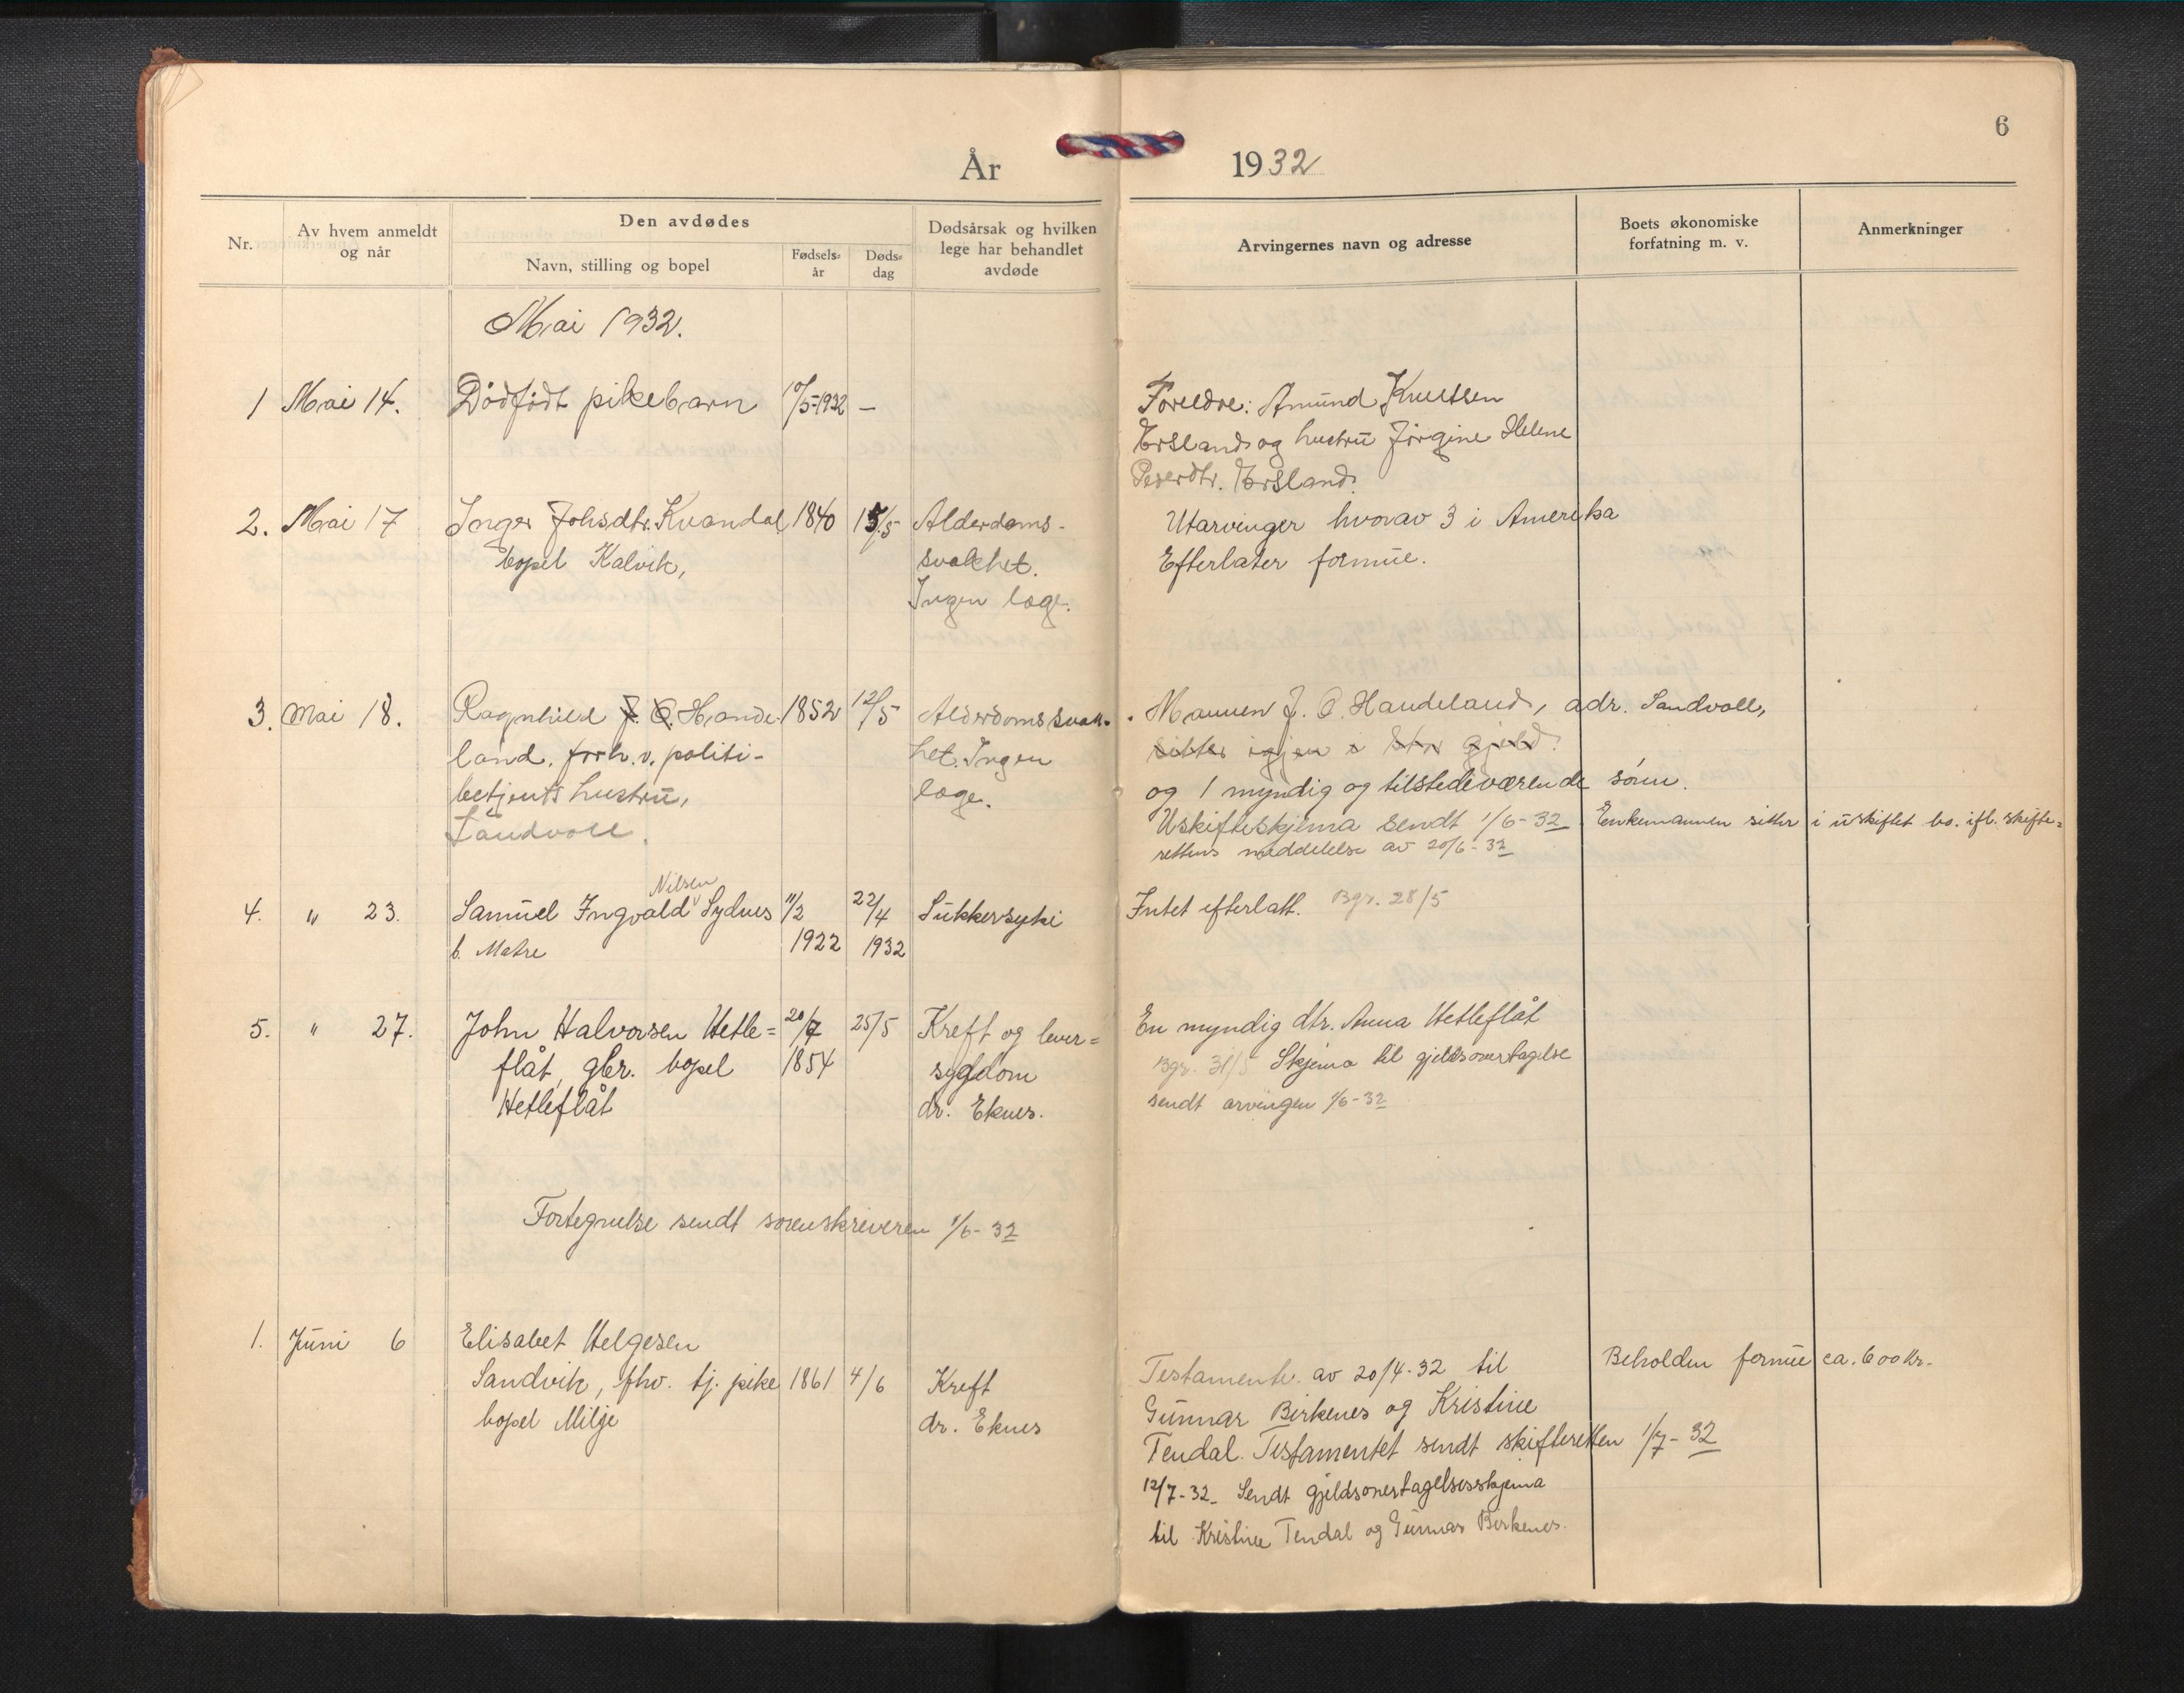 6
År 1932
Nr.
Av hvem anmeldt
og når
Den avdødes
Navn, stilling og bopel
Fødsels-
år
Døds-
dag
Dødsårsak og hvilken
lege har behandlet
avdøde
Arvingernes navn og adresse
Boets økonomiske
forfatning m. v.
Anmerkninger
Mai 1932.
1 Mai 14. Dödfödt pikebarn 10/5-1932 – Foreldre: Amund Knutsen
Ersland og hustru Jörgine Helene
Ersland.
2. Mai 17 Inger Johsdtr. Kvandal 1840 15/5 Alderdoms- Utarvinger hvorav 3 i Amerika
bopel Kalvik, svakhet. Efterlater formue.
Ingen læge.
3. Mai 18. Ragnhild J. O. Hande- 1852 12/5 Alderdomssvak- Mannen J. O. Handeland, adr. Sandvoll,
land. forh. v. politi- het. Ingen sitter igjen i stor gjeld.
betjents hustru, læge. og 1 myndig og tilstedeværende sönn.
Sandvoll. Uskifteskjema sendt 1/6-32 Enkemannen sitter i uskiftet bo. ifl. skifte-
rettens meddelelse av 20/6-32
Nilsen
4. " 23. Samuel Ingvald Sydnes 11/2 22/4 Sukkersyke Intet efterlatt. Bgr. 28/5
b. Matre 1922 1932
5. " 27. John Halvorsen Hetle= 20/7 25/5 Kreft og lever= En myndig dtr. Anna Hetleflåt
flåt, gbr. bopel 1854 sygdom Bgr. 31/5 Skjema til gjeldsovertagelse
Hetleflåt dr. Eknes. sendt arvingen 1/6-32
Fortegnelse sendt sorenskriveren 1/6-32
1. Juni 6 Elisabet Helgesen
Sandvik, fhv. tj. pike 1861 4/6 Kreft Testamente av 20/4-32 til Beholden formue ca. 600 kr.
bopel Milje dr. Eknes Gunnar Birkenes og Kristine
Tendal. Testamentet sendt skifteretten 1/7-32
12/7-32. Sendt gjeldsovertagelsesskjema
til Kristine Tendal og Gunnar Birkenes.